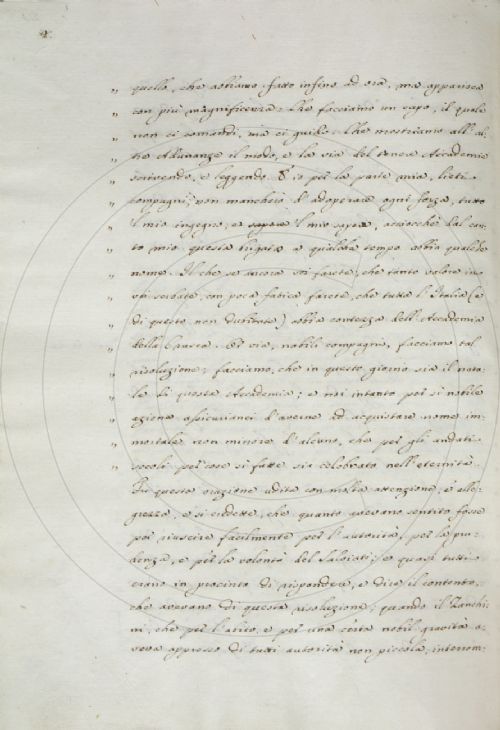 2.
„ quello, che abbiamo fatto infino ad ora, ma apparisca
„ con più magnificenza: Che facciamo un capo, il quale
„ non ci comandi, ma ci guidi: Che mostriamo all' al-
„ tre Adunanze il modo, e la via del tener Accademie
„ scrivendo, e leggendo. Ed io per la parte mia, lieti
„ compagni, non mancherò d' adoperare ogni forza, tutto
„ 'l mio ingegno, e sapere 'l mio sapere, acciocchè dal can-
„ to mio questa brigata a qualche tempo abbia qualche
„ nome. Il che se ancora voi farete, che tanto valore in
„ voi serbate, con poca fatica farete, che tutta l' Italia (e
„ di questo non dubitate) abbia contezza dell' Accademia
„ della Crusca. Or via, nobili compagni, facciamo tal
„ risoluzione; facciamo, che in questo giorno sia il nata-
„ le di questa Accademia; e noi intanto per sì nobile
„ azione assicurianci d' averne ad acquistare nome im-
„ mortale non minore d' alcuno, che per gli andati
„ secoli per cose sì fatte sia celebrato nell' eternità.
Fu questa orazione udita con molta attenzione, e alle-
grezza, e si credette, che quanto avevano sentito fosse
poi riuscire facilmente per l' autorità, per la pru-
denza, e per la volontà del Salviati; e quasi tutti
erano in procinto di rispondere, e dire il contento,
che avevano di questa risoluzione; quando il Zanchi-
ni, che per l' abito, e per una certa nobil gravità a-
veva appresso di tutti autorità non piccola, interrom-